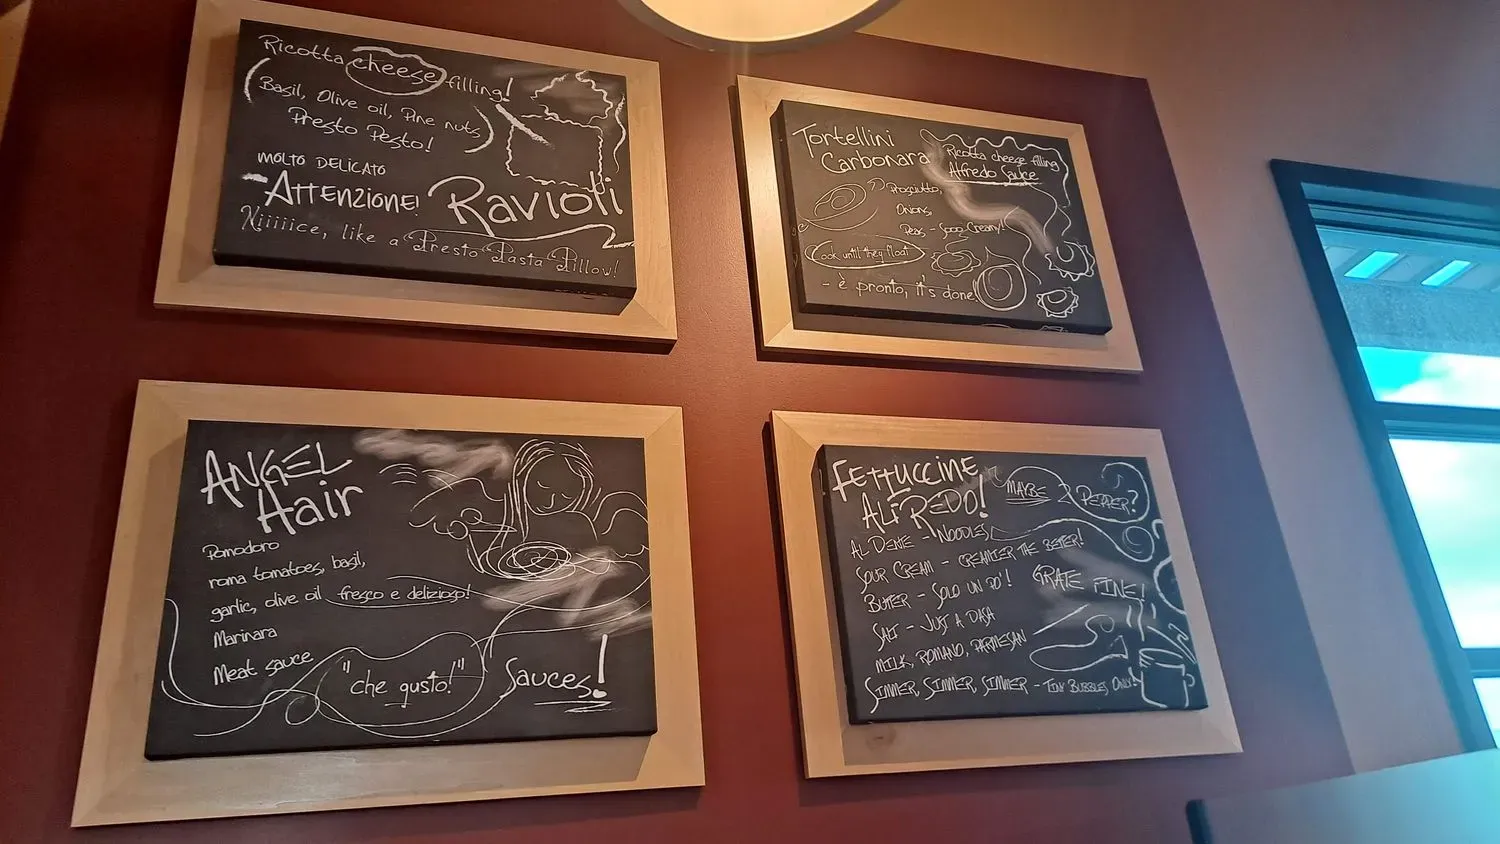 Ricotta cheese filling!
(Basil, Olive oil, Pine nuts)
Presto Pesto!
MOLTO DELICATO
-ATTENZIONE!
Ravioli
Niiiiice, like a Presto Pasta Pillow!
Tortellini
Carbonara
Ricotta cheese filling
Alfredo Sauce
Prosciutto,
Onions,
Peas - Sooo Creamy!
Cook until they float
- è pronto, it's done.
ANGEL
Hair
Pomodoro
roma tomatoes, basil,
garlic, olive oil fresco e delizioso!
Marinara
Meat sauce
"che gusto!"
Sauces!
FETTUCCINE
ALFREDO!
MAYBE PEPPER?
AL DENTE - NOODLES
SOUR CREAM - CREAMIER THE BETTER!
BUTTER - SOLO UN PO'!
GRATE FINE!
SALT - JUST A DASA
MILK, ROMANO, PARMESAN
SIMMER, SIMMER, SIMMER - TINY BUBBLES ONLY!